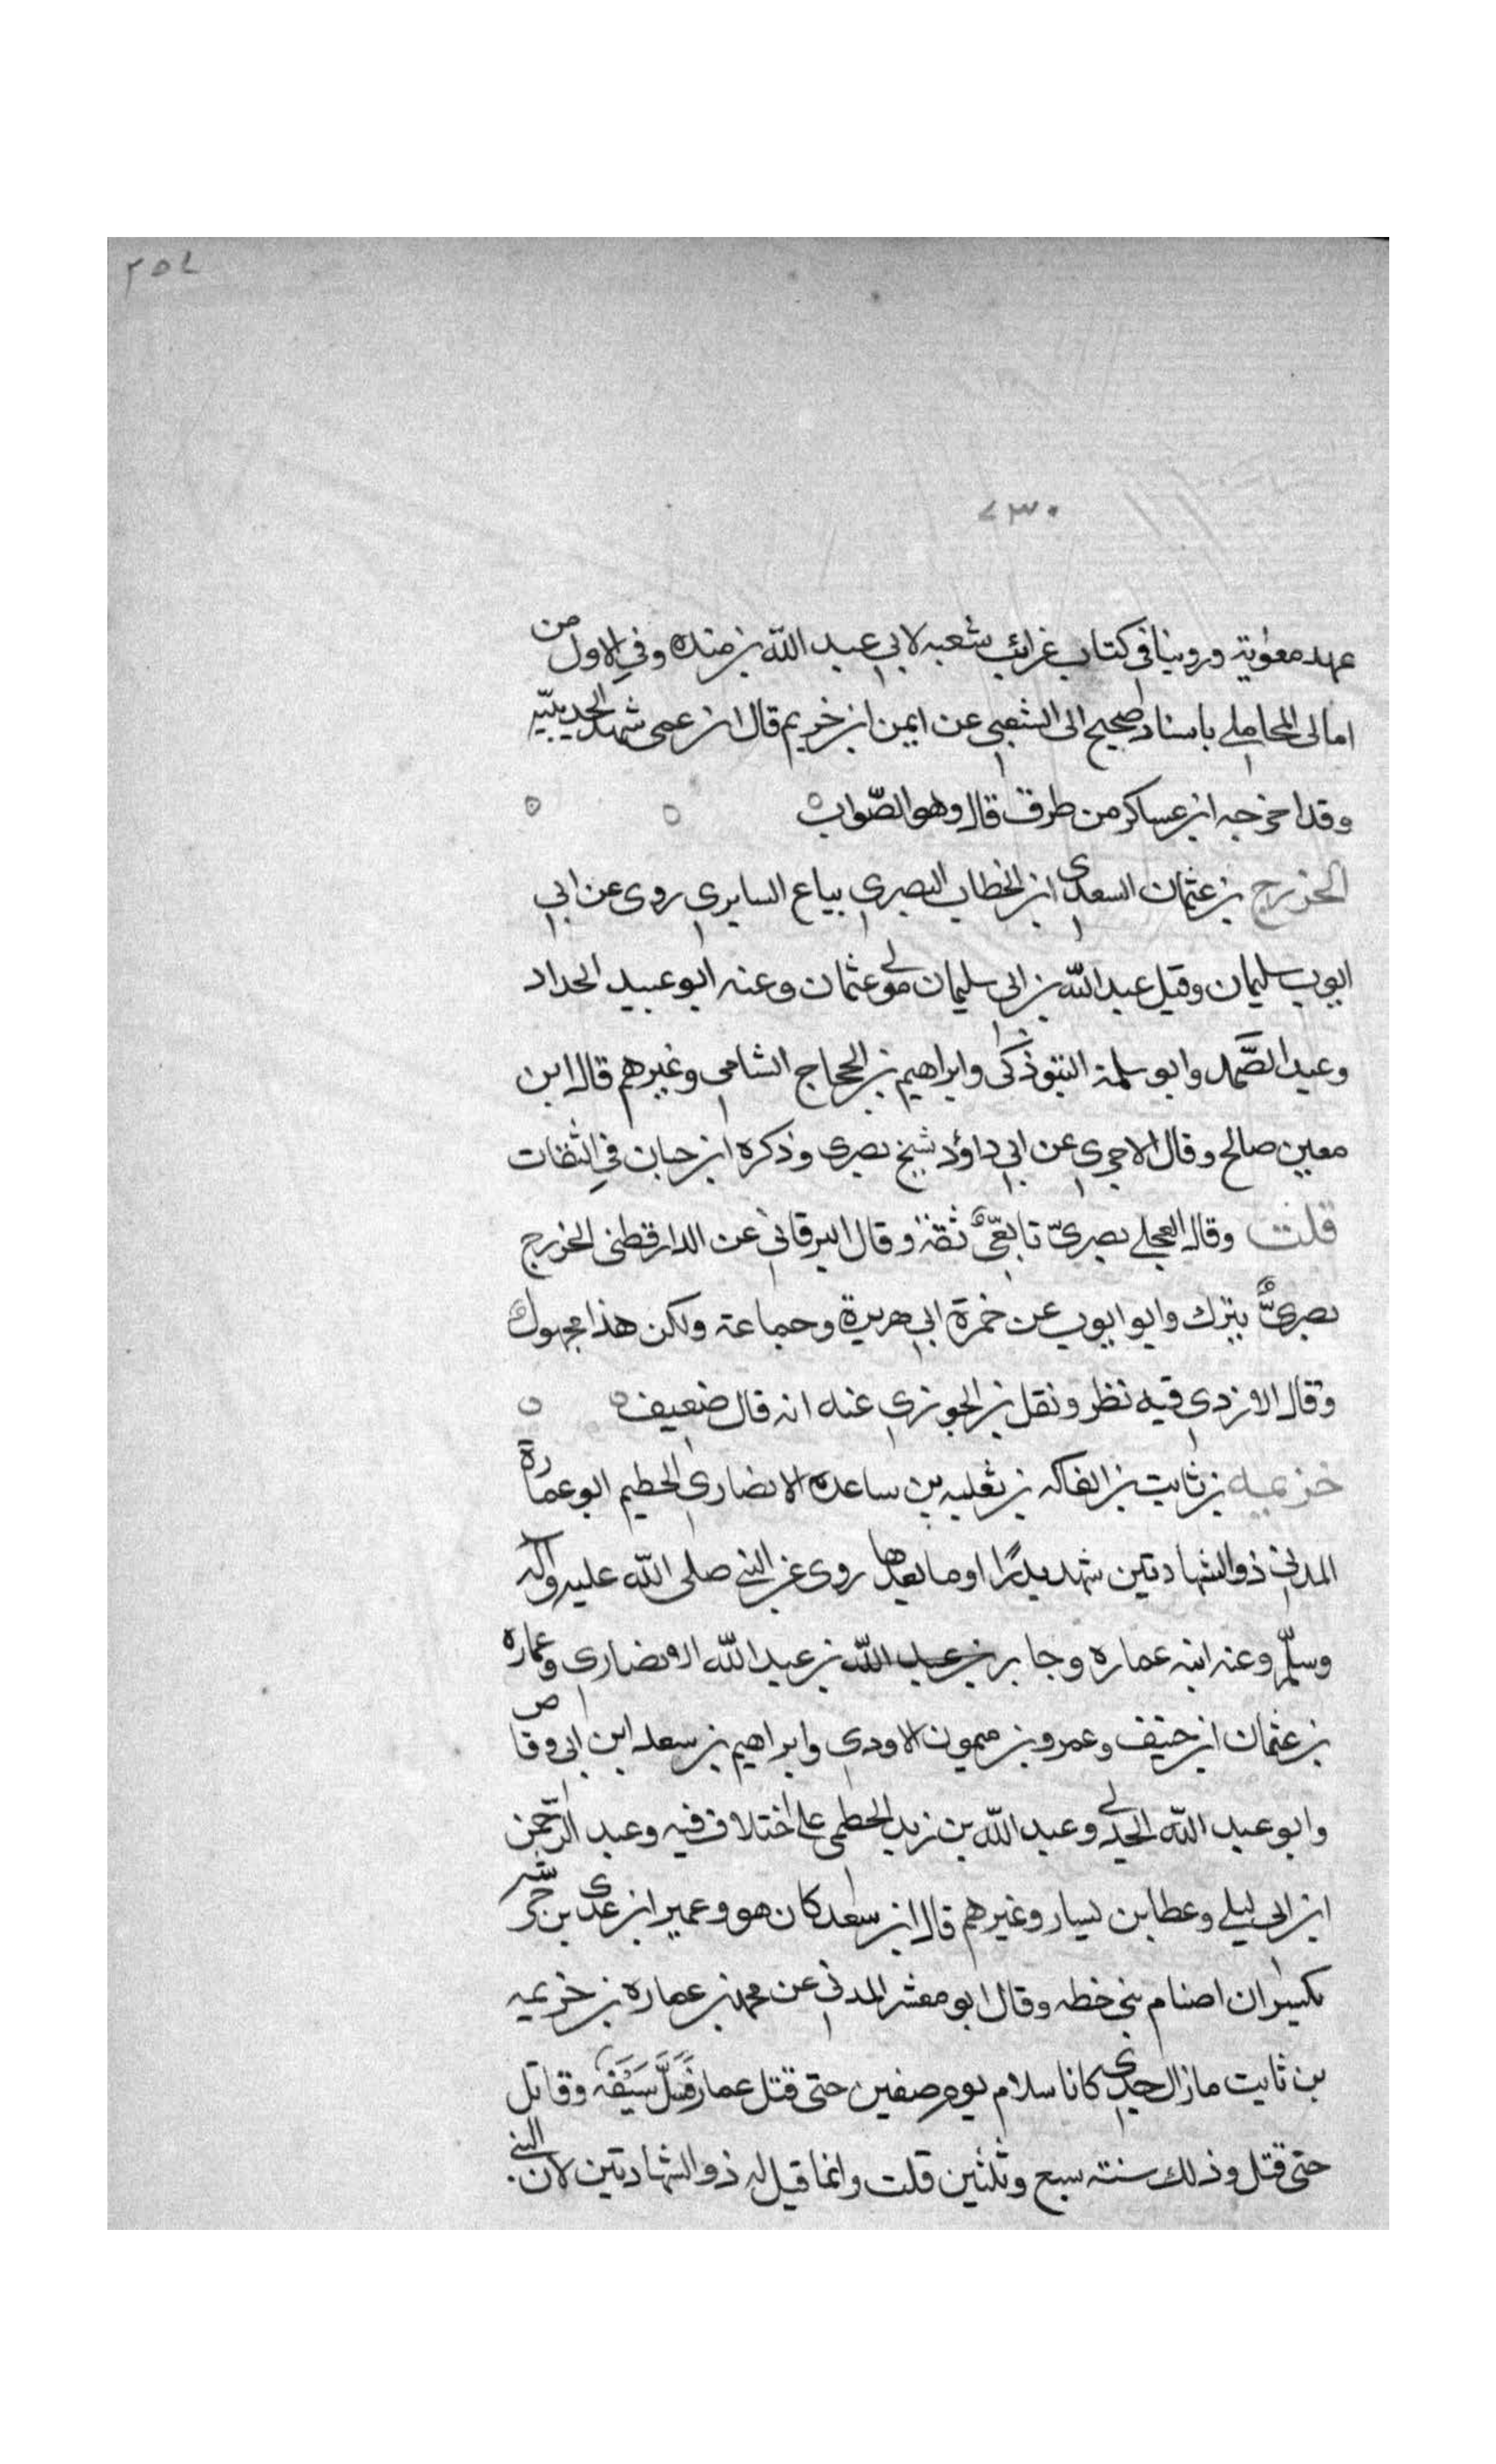 ٢٥٤
٧٣٠
عهد معوية وروينا في كتاب غرائب شعبه لابي عبد الله بن منده وفي الاول من
امالى المحاملي باسناد صحيح الى الشعبي عن ايمن ابن خريم قال ان عمى شهد الحديبيّه
وقد اخرجه ابن عساكر من طرق قال وهو الصّواب ه ه ه
الخزرج بن عثمان السعدى ابن الخطاب البصري بياع السابري روى عن ابي
ايوب سليمان وقيل عبد الله بن ابي سليمان مولى عثمان وعنه ابو عبيد الحداد
وعبد الصّمد وابو سلمة التبوذكى وابراهيم بن الحجاج الشامي وغيرهم قال ابن
معين صالح وقال الاجري عن ابي داؤد شيخ بصرى وذكره ابن حبان في الثقات
قلت وقال العجلي بصريّ تابعيّ ثقة وقال البرقاني عن الدارقطنى الخزرج
بصريٌّ يترك وابو ايوب عن خمرة ابي هريرة وجماعة ولكن هذا مجهول
وقال الازدي فيه نظر ونقل بن الجوزي عنه انه قال ضعيف ه ه
خزيمه بن ثابت بن الفاكه بن ثعلبه بن ساعده الانصاري الحطيم ابو عمارة
المدني ذو الشهادتين شهد بدرًا وما بعدها روى عن النبي صلى الله عليه وآله
وسلّم وعنه ابنه عماره وجابر بن عبد الله بن عبد الله الانصاري وعماره
بن عثمان ابن حنيف وعمرو بن ميمون الاودي وابراهيم بن سعد ابن ابي وقاص
وابو عبد الله الجدلي وعبد الله بن زيد الخطمي على اختلاف فيه وعبد الرّحمن
ابن ابي ليلي وعطا بن يسار وغيرهم قال ابن سعد كان هو وعمير ابن عدى بن خرشه
يكسران اصنام بني خطه وقال ابو معشر المدني عن محمد بن عماره بن خزيمه
بن ثابت مازال جدي كافا سلام يوم صفين حتى قتل عمار فَسَلَّ سَيْفَهُ وقاتل
حتى قتل وذلك سنة سبع وثلثين قلت وانما قيل له ذو الشهادتين لان النبي